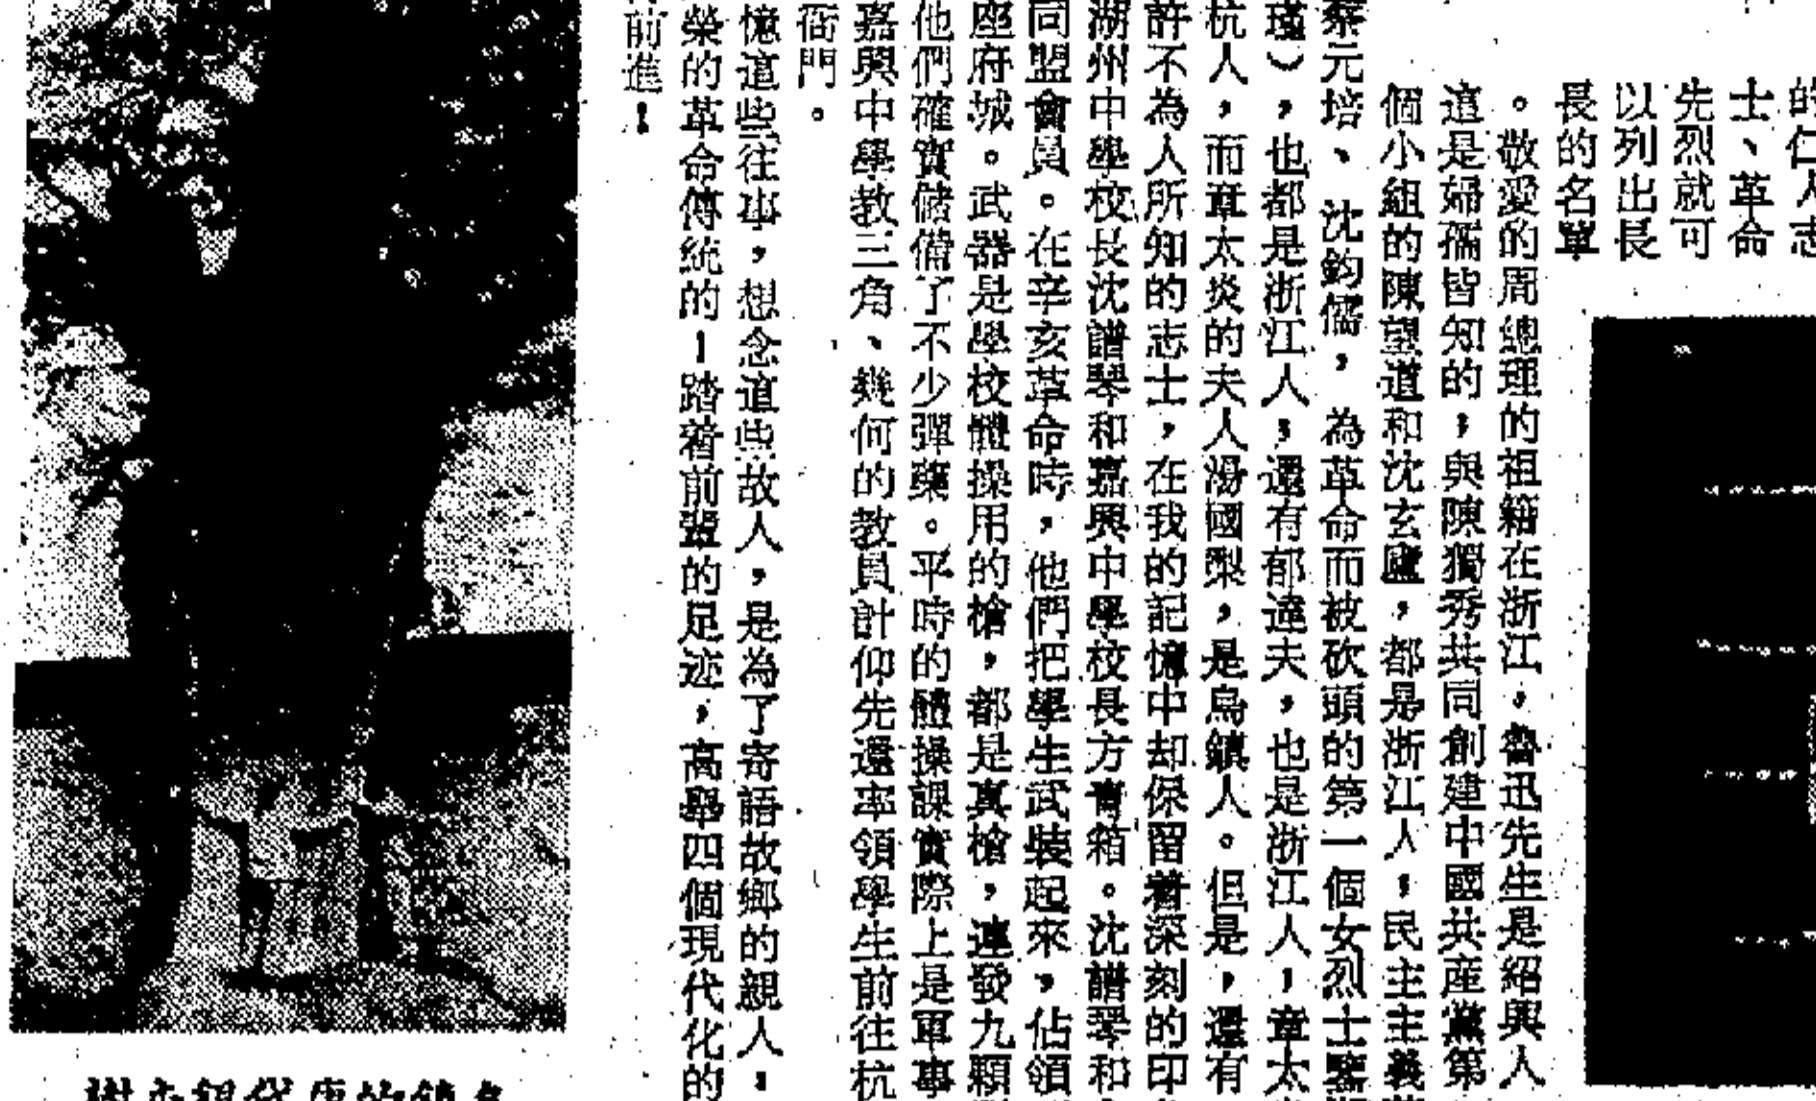 的仁人志
士、革命
先烈就可
以列出長
長的名單
。敬愛的周總理的祖籍在浙江，魯迅先生是紹興人
這是婦孺皆知的，與陳獨秀共同創建中國共産黨第
個小組的陳望道和沈玄廬，都是浙江人，民主主義
蔡元培、沈鈞儒，為革命而被砍頭的第一個女烈士鑒
瑾），也都是浙江人，還有郁達夫，也是浙江人，章太
杭人，而章太炎的夫人湯國梨，是烏鎮人。但是，還有
許不為人所知的志士，在我的記憶中却保留着深刻的印
湖州中學校長沈譜琴和嘉興中學校長方青箱。沈譜琴和
同盟會員。在辛亥革命時，他們把學生武裝起來，佔領
座府城。武器是學校體操用的槍，都是真槍，連發九顆
他們確實儲備了不少彈藥。平時的體操課實際上是軍事
嘉興中學教三角、幾何的教員計仰先還率領學生前往杭
衙門。
憶這些往事，想念這些故人，是為了寄語故鄉的親人：
榮的革命傳統的！踏着前輩的足迹，高舉四個現代化的
前進！
樹杏銀代唐的鎮烏